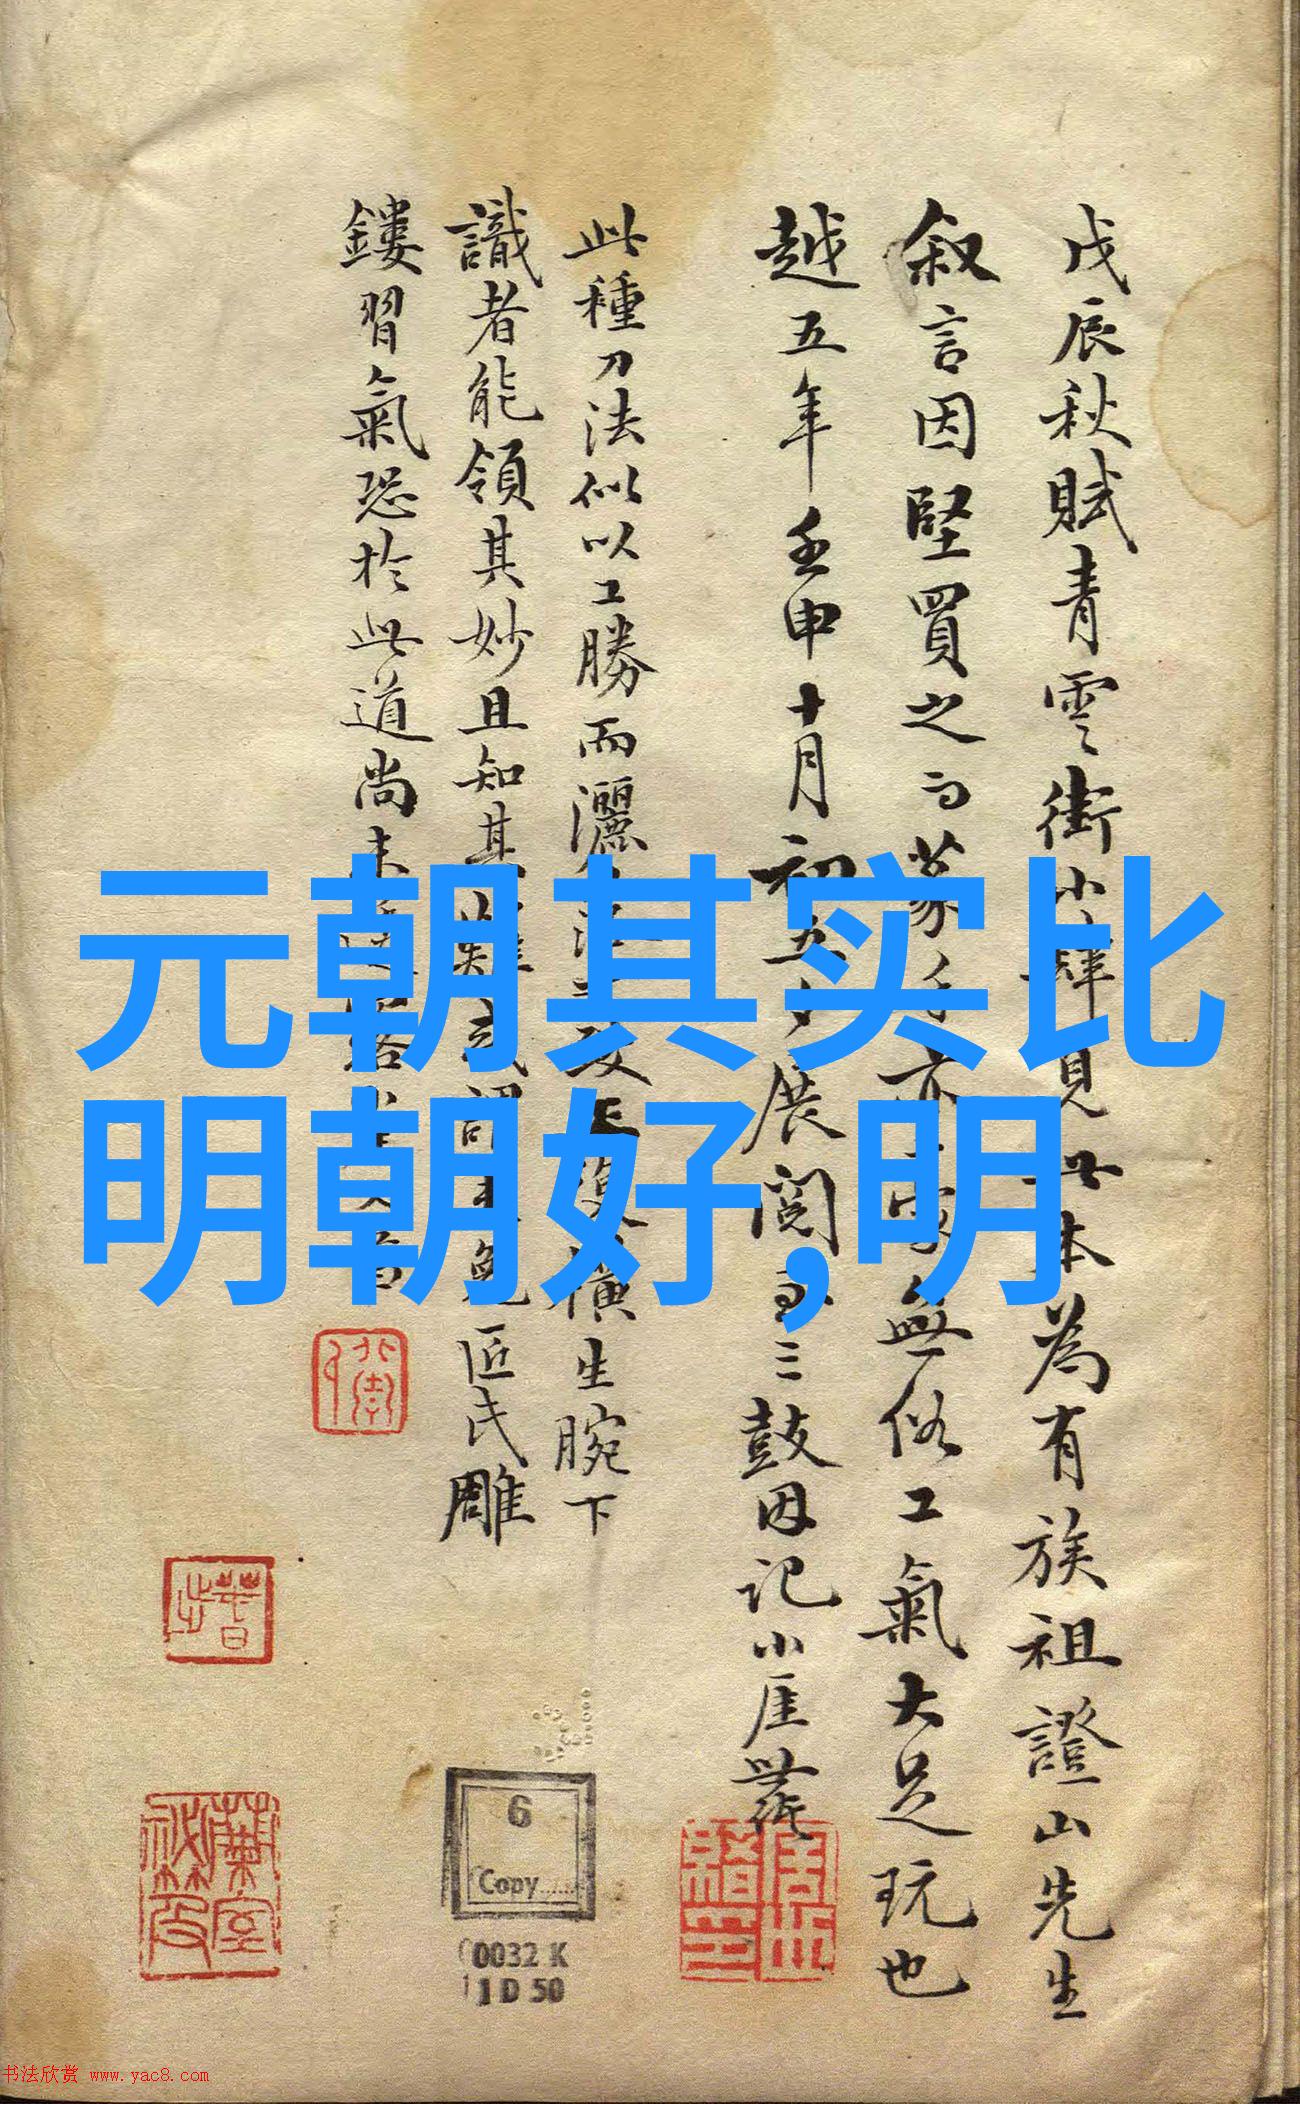 戊辰秋賦青雲街小肆見此本為有族祖證山先生
叙言因堅買之而篆手亦家無俗工氣大足玩也
越五年壬申十月初五夕展閱至三鼓因记小厓
此種刀法似以工勝而灑橫生腕下
識者能領其妙且知其難或謂未免匠氏雕
鏤習氣恐於此道尚未
元朝其实比
明朝好,明
6
Copy......
0032 K
1 D 50
书法欣赏 www.yac8.com